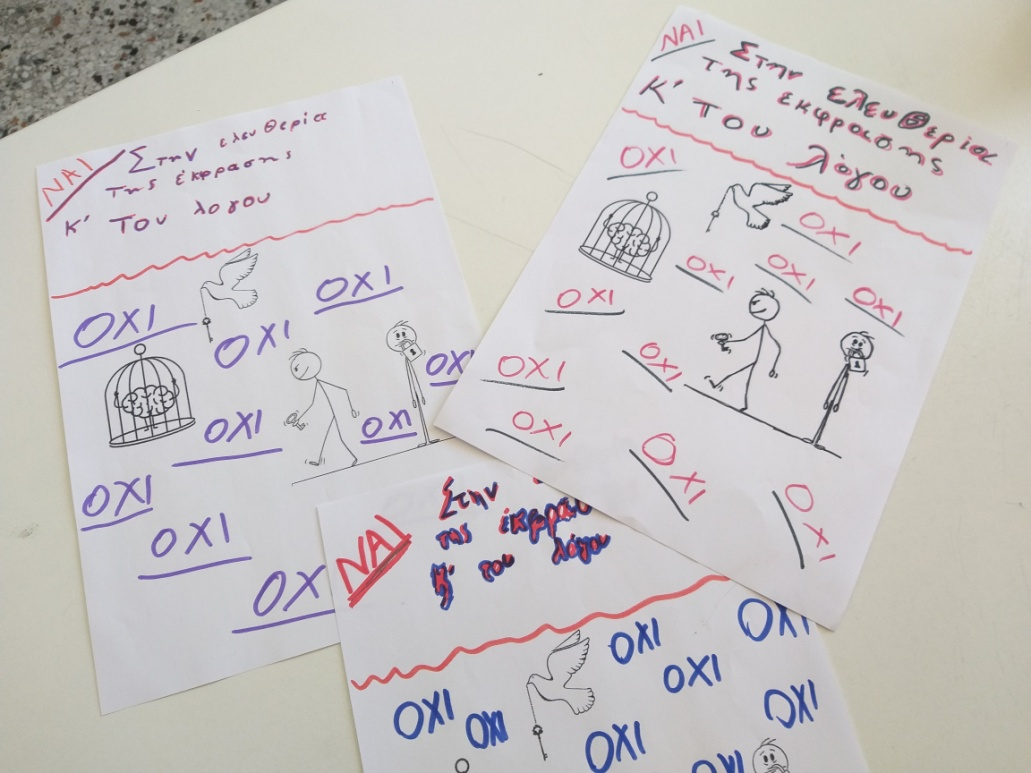 ΝΑΙ Στην ελευθερία
της έκφρασης
κ' Του λογου
ΟΧΙ
ΟΧΙ
ΟΧΙ
ΟΧΙ
ΟΧΙ
ΟΧΙ
ΟΧΙ
ΟΧΙ
ΝΑΙ Στην ελευθερία
της εκφρασης
Κ' Του λόγου
ΟΧΙ
ΟΧΙ
ΟΧΙ
ΟΧΙ
ΟΧΙ
ΟΧΙ
ΟΧΙ
ΟΧΙ
ΟΧΙ
ΟΧΙ
ΟΧΙ
ΝΑΙ Στην
της
κ' του λόγου
ΟΧΙ
ΟΧΙ
ΟΧΙ
ΟΧΙ
ΟΧΙ
ΟΧΙ
ΟΧΙ